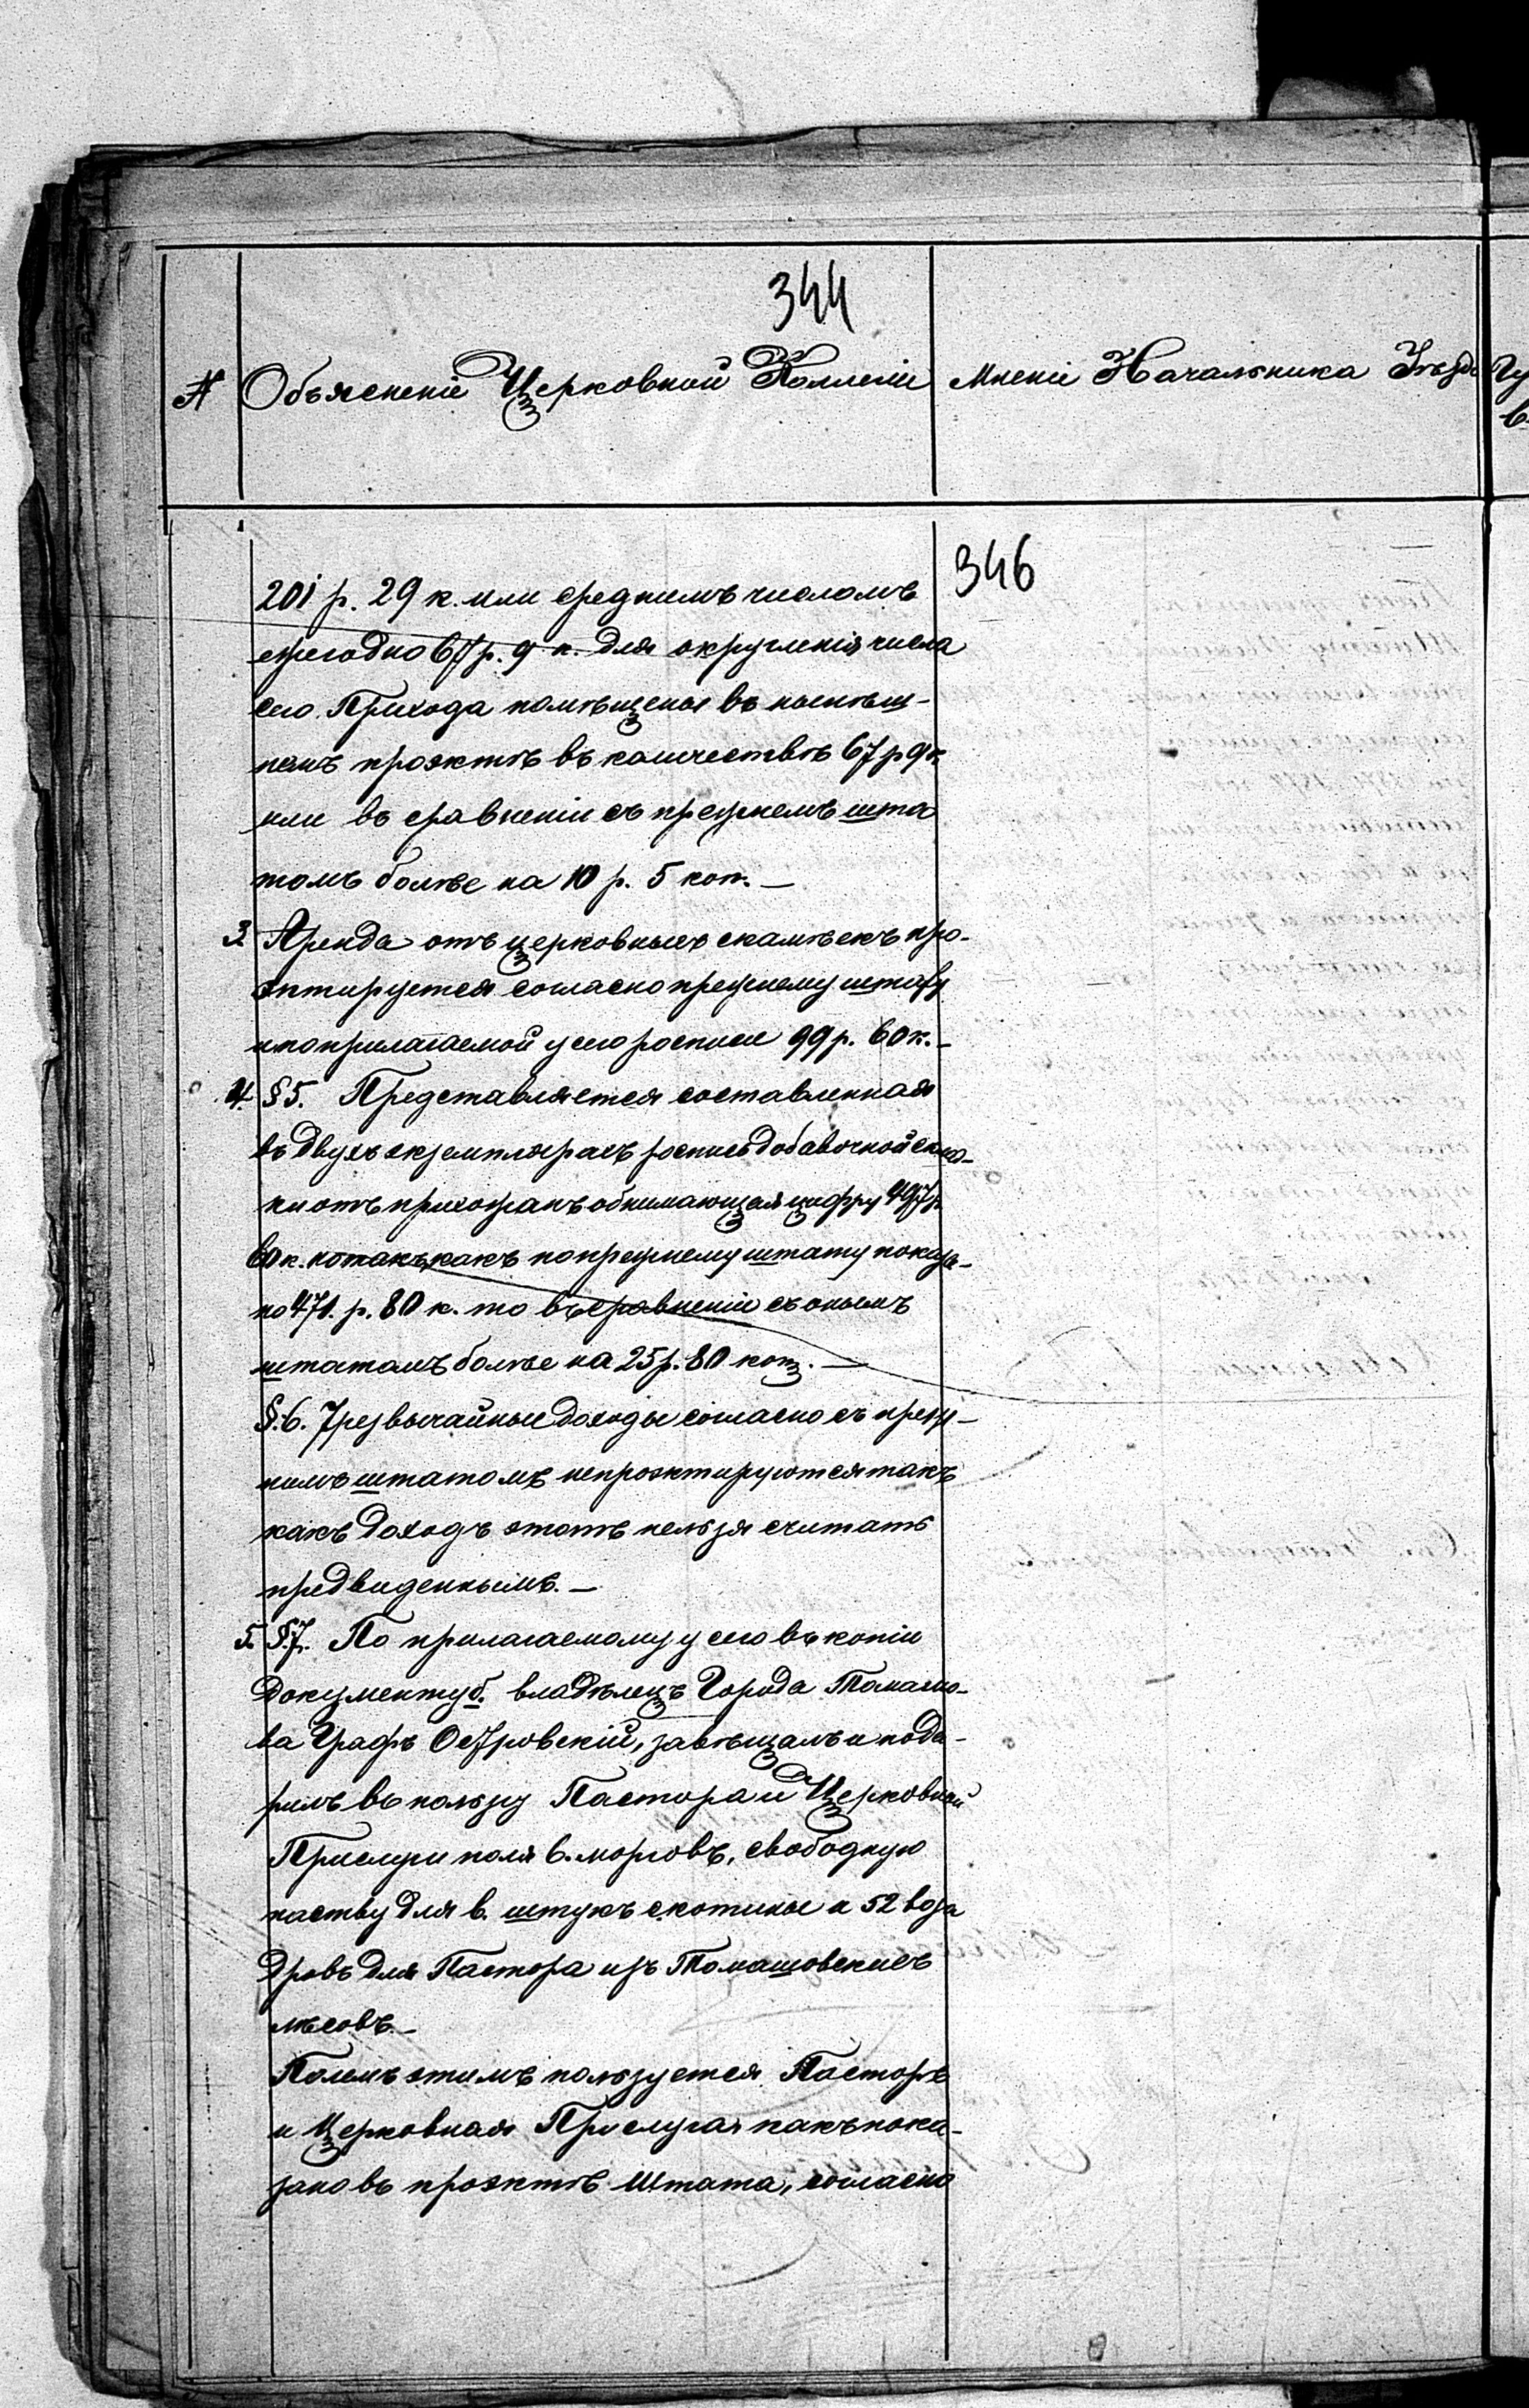 344
№ Объясненіе Церковной Коллегіи Мненіе Начальника Уѣзда
346
201 р. 29 к. или среднимъ числомъ
ежегодно 67 р. 9 к. для округленія числа
сего Прихода помѣщены въ нынѣш-
немъ проэктѣ въ количествѣ 67 р 9 к.
или въ сравненіи съ прежнемъ шта
томъ болѣе на 10 р. 5 коп. —
3. Аренда отъ церковныхъ скамѣекъ про-
эктируется согласно прежнему штату
и поприлагаемой у сего росписи 99 р. 60 к. —
4. § 5. Представляется составленная
въ двухъ экземплярахъ роспись добавочной склад-
ки отъ прихожанъ обнимающая цифру 497 р.
60 к. но такъ, какъ по прежнему штату показа-
но 471. р. 80 к. то въ сравненіи съ онымъ
штатомъ болѣе на 25 р. 80 коп. —
§. 6. Чрезвычайные доходы согласно съ преж-
нимъ штатомъ непроэктируются такъ
какъ доходъ этотъ нельзя считать
предвиденнымъ. —
5. §. 7. По прилагаемому у сего въ копіи
документу б. владѣлецъ Города Томашо-
ва Графъ Островскій, завѣщалъ и пода-
рилъ въ пользу Пастора и Церковной
Прислуги поля 6. морговъ, свободную
паству для 6. штукъ скотины и 52 воза
дровъ для Пастора изъ Томашовскихъ
лѣсовъ. —
Полемъ этимъ пользуется Пасторъ
и Церковная Прислуга какъ пока-
зано въ проэктѣ Штата, согласно